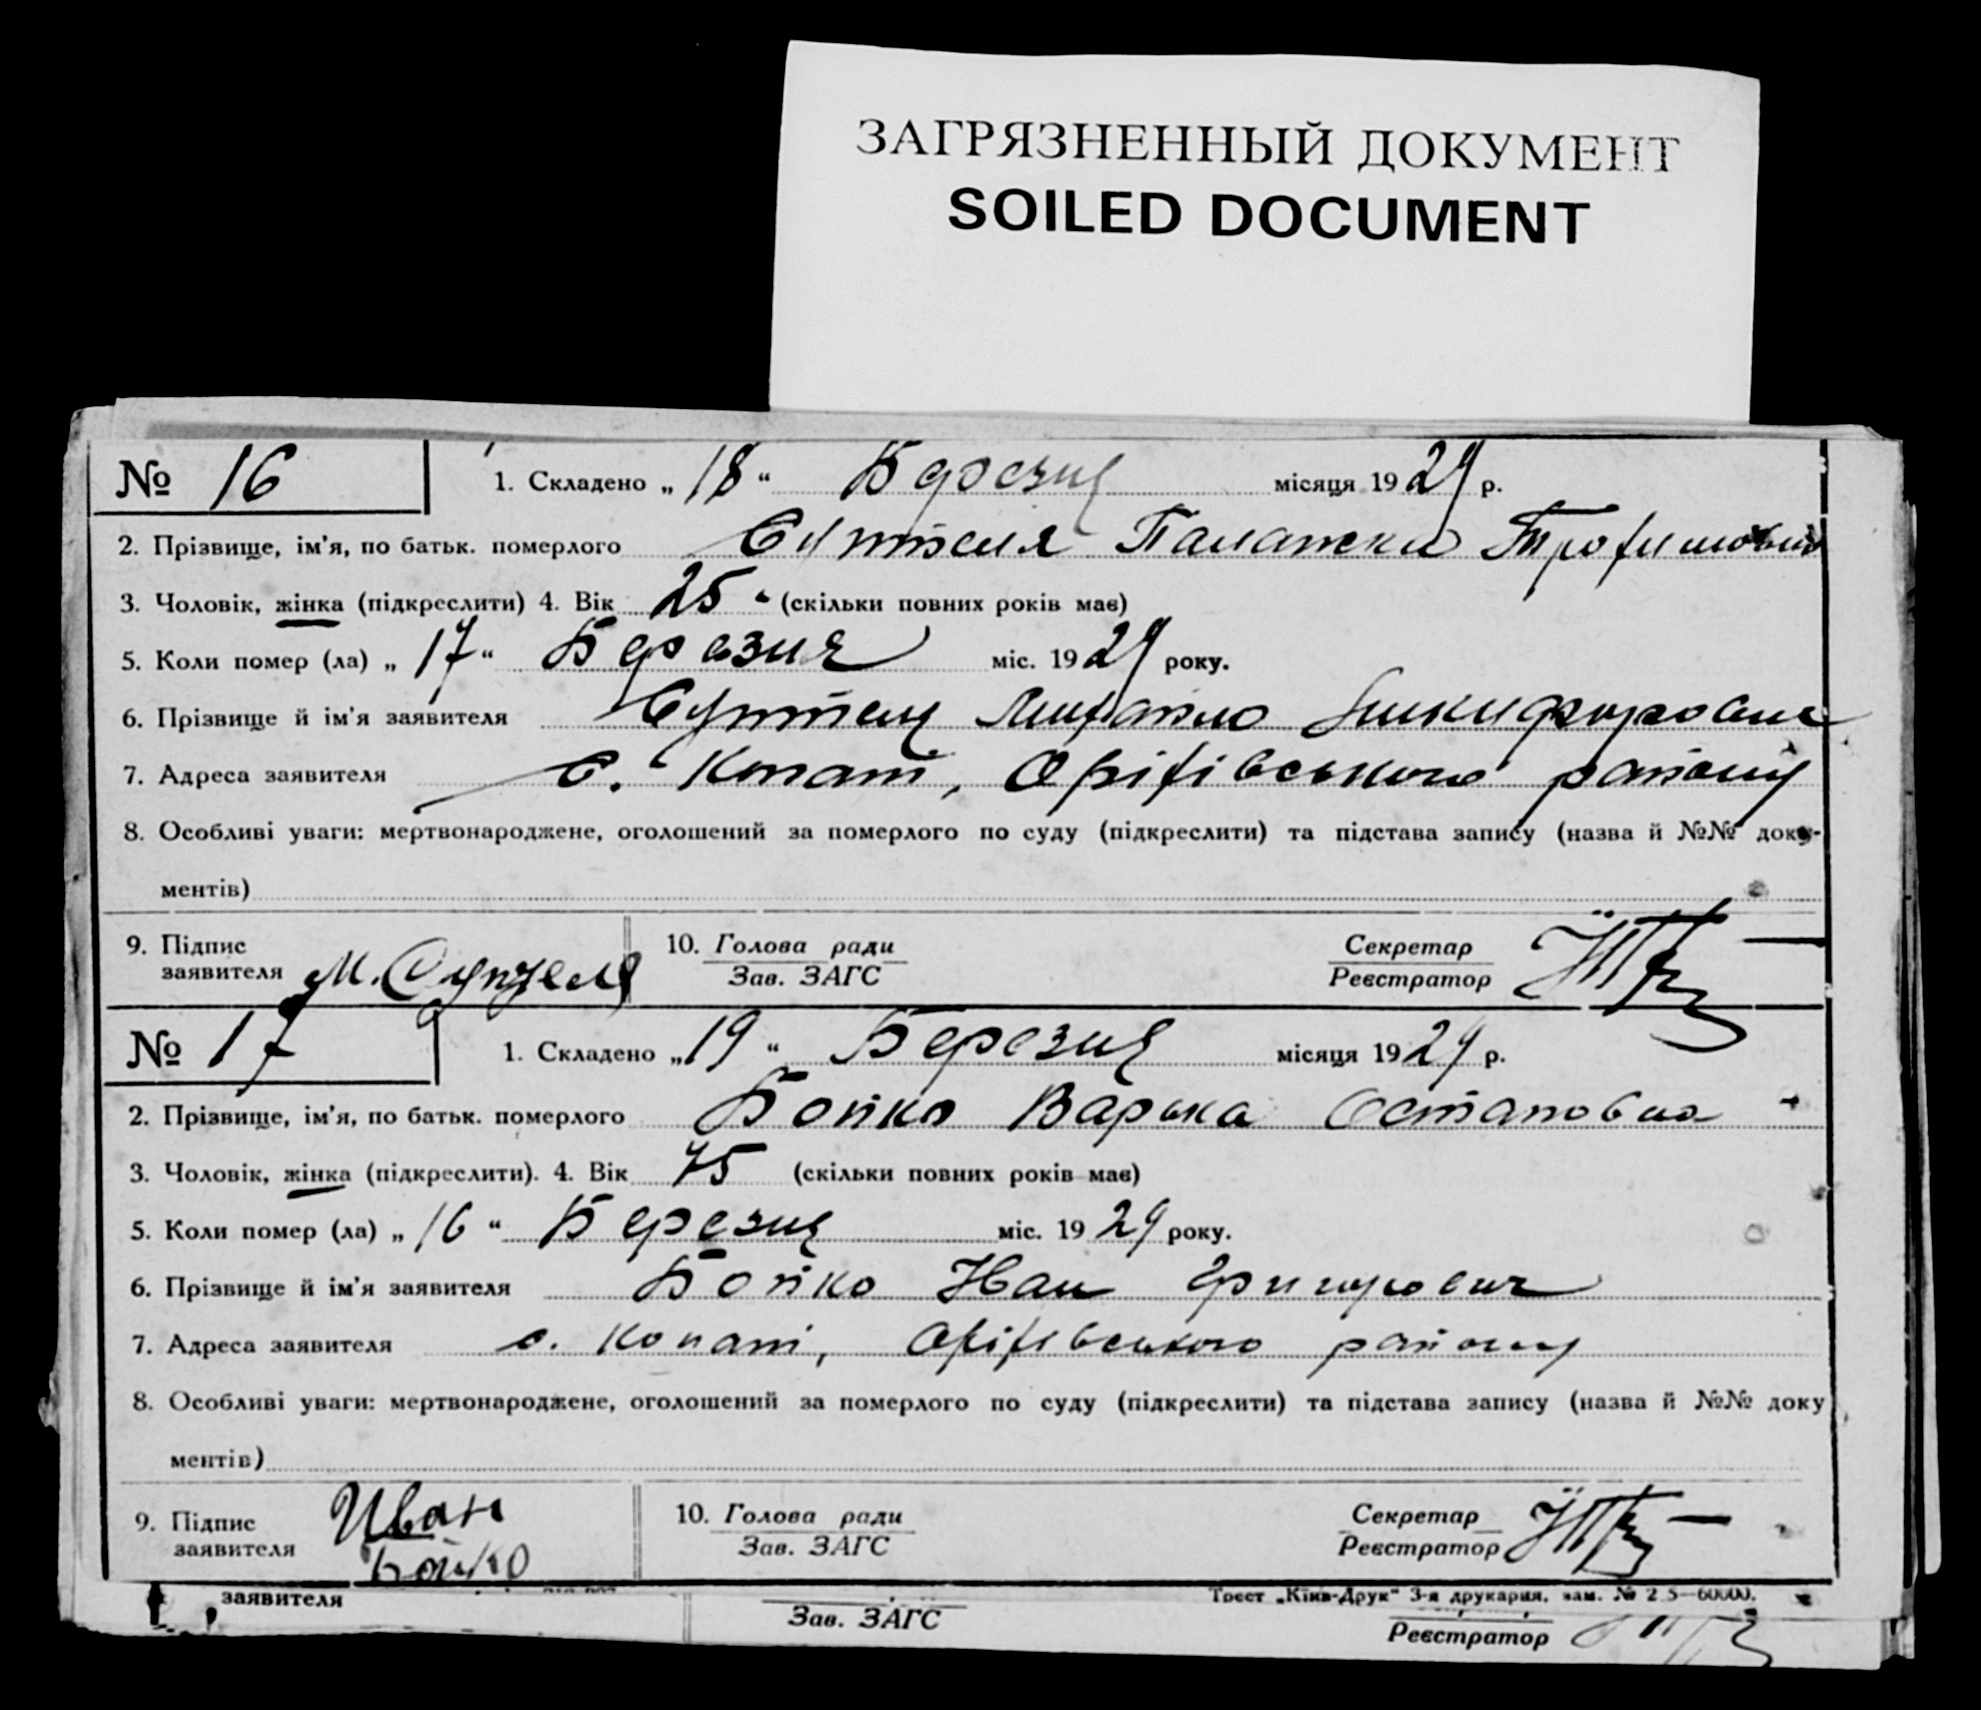 ЗАГРЯЗНЕННЫЙ ДОКУМЕНТ
SOILED DOCUMENT
№ 16 1. Складено „18“ Березня місяця 1929 р.
2. Прізвище, ім'я, по батьк. померлого Палажка Трофимовна
3. Чоловік, жінка (підкреслити) 4. Вік 25 (скільки повних років має)
5. Коли помер (ла) „17“ Березня міс. 1929 року.
6. Прізвище й ім'я заявителя Михайло
7. Адреса заявителя с. Копані, Оріхівського району
8. Особливі уваги: мертвонароджене, оголошений за померлого по суду (підкреслити) та підстава запису (назва й №№ доку-
ментів)
9. Підпис 10. Голова ради Секретар
заявителя М. Зав. ЗАГС Реєстратор
№ 17 1. Складено „19“ Березня місяця 1929 р.
2. Прізвище, ім'я, по батьк. померлого Бойко Варька Остаповна
3. Чоловік, жінка (підкреслити). 4. Вік 75 (скільки повних років має)
5. Коли помер (ла) „16“ Березня міс. 1929 року.
6. Прізвище й ім'я заявителя Бойко Іван Григорович
7. Адреса заявителя с. Копані, Оріхівського району
8. Особливі уваги: мертвонароджене, оголошений за померлого по суду (підкреслити) та підстава запису (назва й №№ доку
ментів)
9. Підпис Иван 10. Голова ради Секретар
заявителя Бойко Зав. ЗАГС Реєстратор
заявителя Трест „Київ-Друк“ 3-я друкарня, зам. №
Зав. ЗАГС Реєстратор